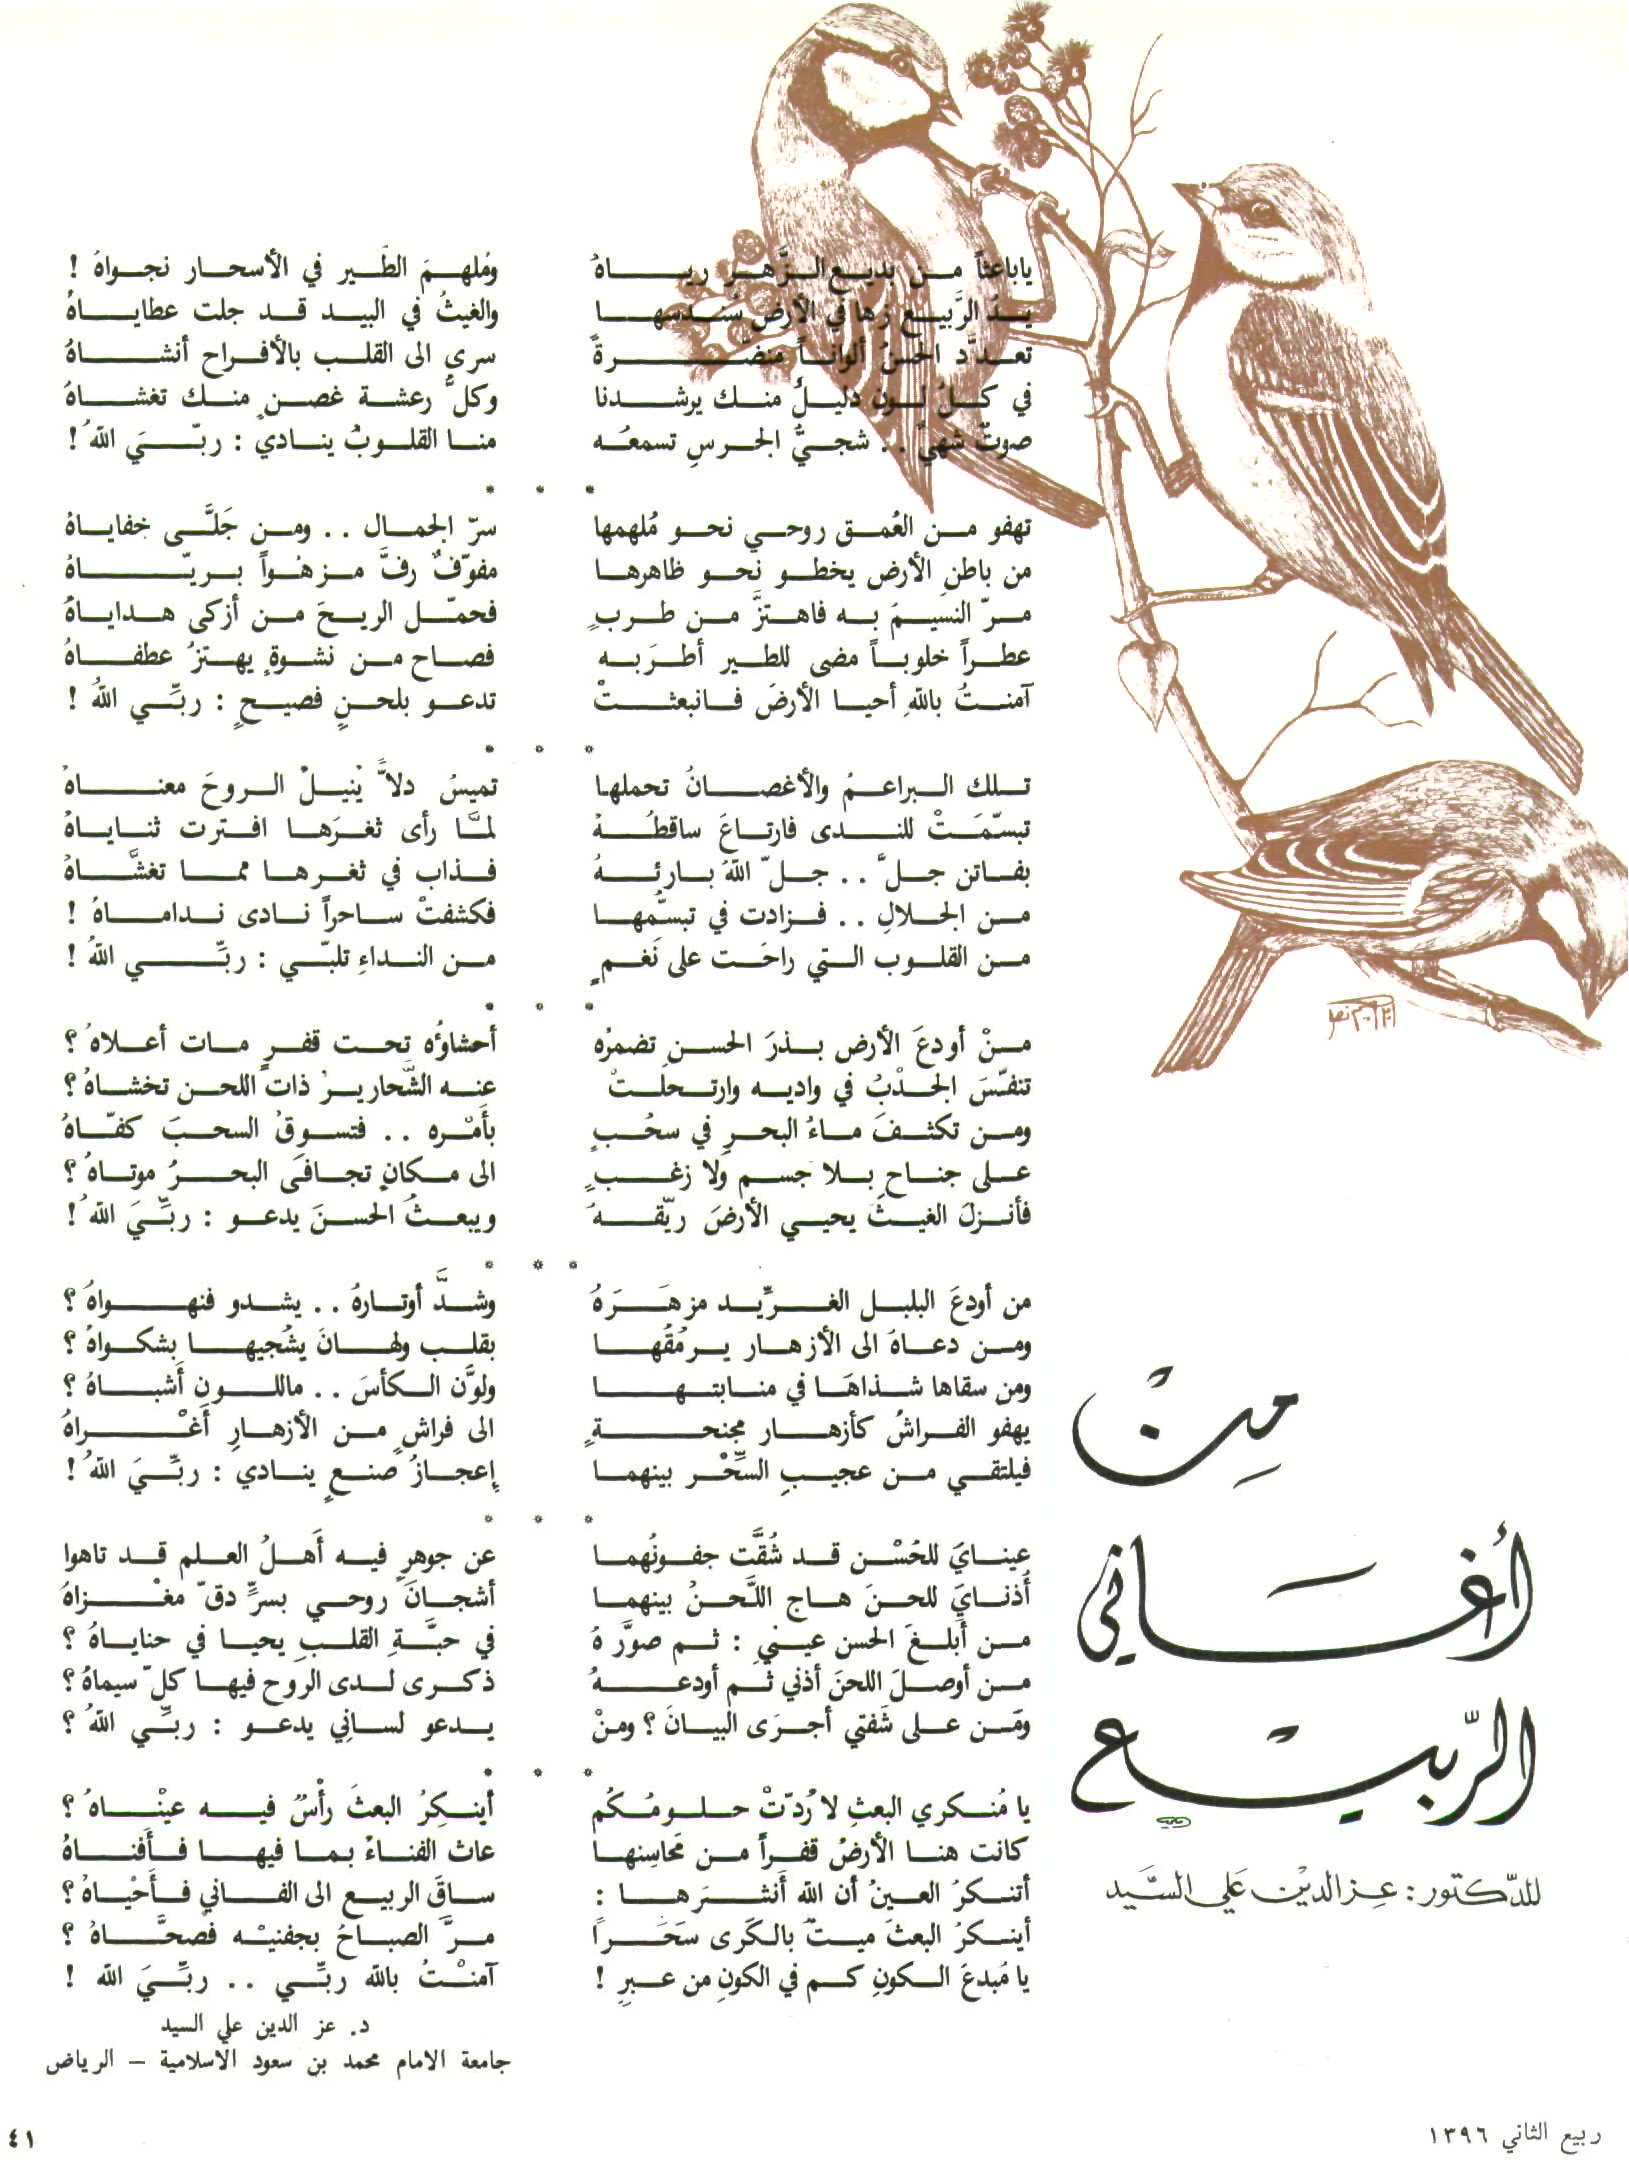 من
أغاني
الربيع
للدكتور : عز الدين علي السيد
ياباعثاً من بديع الزَّهر رياهُ ومُلهمَ الطَّير في الأسحار نجواهُ !
يدُ الرَّبيع زها في الأرض سُندسها والغيثُ في البيد قد جلت عطاياهُ
تعدَّد الحسنُ ألواناً منضَّرةً سرى الى القلب بالأفراح أنشاهُ
في كلُ لون دليلٌ منك يرشدنا وكلُّ رعشة غصنٍ منك تغشاهُ
صوتٌ شهيٌ .. شجيُّ الجرسِ تسمعُه منا القلوبُ ينادي : ربّيَ اللهُ !
* * *
تهفو من العُمق روحي نحو مُلهمها سرّ الجمال .. ومن جَلَّى خفاياهُ
من باطنِ الأرض يخطو نحو ظاهرها مفوّفٌ رفَّ مزهُواً بريّاهُ
مرّ النسيمَ به فاهتزَّ من طربٍ فحمّل الريحَ من أزكى هداياهُ
عطراً خلوباً مضى للطير أطرَبه فصاح من نشوةٍ يهتزُ عطفاهُ
آمنتُ باللهِ أحيا الأرضَ فانبعثتْ تدعو بلحنٍ فصيحٍ : ربِّي اللهُ !
* * *
تلك البراعمُ والأغصانُ تحملها تميسُ دلاًّ يُنيلُ الروحَ معناهُ
تبسّمَتْ للندى فارتاعَ ساقطُهُ لمَّا رأى ثغرَها افترت ثناياهُ
بفاتن جلَّ .. جلّ اللهُ بارئهُ فذاب في ثغرها مما تغشَّاهُ
من الجلالِ .. فزادت في تبسّمها فكشفتْ ساحراً نادى نداماهُ !
من القلوب التي راحَت على نَغمٍ من النداءِ تلبّي : ربِّي اللهُ !
* * *
منْ أودعَ الأرض بذرَ الحسنِ تضمرُه أحشاؤُه تحت قفرٍ مات أعلاهُ ؟
تنفّسَ الجدْبُ في واديه وارتحلتْ عنه الشَّحاريرُ ذات اللحن تخشاهُ ؟
ومن تكثفَ ماءُ البحرِ في سحُبٍ بأمْره .. فتسوقُ السحبَ كفّاهُ
على جناحٍ بلا جسم ولا زغبٍ الى مكانٍ تجافَى البحرُ موتاهُ ؟
فأنزلَ الغيثَ يحيي الأرضَ ريّقهُ ويبعثُ الحسنَ يدعو : ربِّيَ اللهُ !
* * *
من أودعَ البلبل الغرِّيد مزهَرَهُ وشدَّ أوتارهُ .. يشدو فنهواهُ ؟
ومن دعاهُ الى الأزهار يرمُقُها بقلب ولهانَ يشُجيها بشكواهُ ؟
ومن سقاها شذاهَا في منابتها ولوَّن الكأسَ .. ماللونِ أشباهُ ؟
يهفو الفراشُ كأزهار مجنحةٍ الى فراشٍ من الأزهارِ أغْراهُ
فيلتقي من عجيبِ السِّحْر بينهما إعجازُ صنعٍ ينادي : ربِّيَ اللهُ !
* * *
عينايَ للحُسْن قد شُقَّت جفونُهما عن جوهرٍ فيه أَهلُ العلم قد تاهوا
أُذنايَ للحنَ هاج اللَّحنُ بينهما أشجانَ روحي بسرٍّ دقّ مغْزاهُ
من أَبلغَ الحسن عيني : ثم صوَّره في حبَّةِ القلبِ يحيا في حناياهُ ؟
من أوصلَ اللحنَ أذني ثم أودعهُ ذكرى لدى الروح فيها كلّ سيماهُ ؟
ومَن على شَفتي أجرَى البيانَ ؟ ومنْ يدعو لساني يدعو : ربِّي اللهُ ؟
* * *
يا مُنكري البعثِ لا رُدّتْ حلومُكُم أينكِرُ البعثَ رأْسٌ فيه عيْناهُ ؟
كانت هنا الأرضُ قفراً من مَحاسِنها عاث الفناءُ بما فيها فأَفناهُ
أتنكرُ العينُ أن الله أَنشرَها : ساقَ الربيع الى الفاني فأَحْياهُ ؟
أينكرُ البعثَ ميتٌ بالكَرى سَحَراً مرَّ الصباحُ بجفنيْه فصحَّاهُ ؟
يا مُبدعَ الكونِ كم في الكونِ من عبرٍ ! آمنْتُ بالله ربِّي .. ربِّيَ الله !
د. عز الدين علي السيد
جامعة الامام محمد بن سعود الاسلامية – الرياض
ربيع الثاني ١٣٩٦
٤١